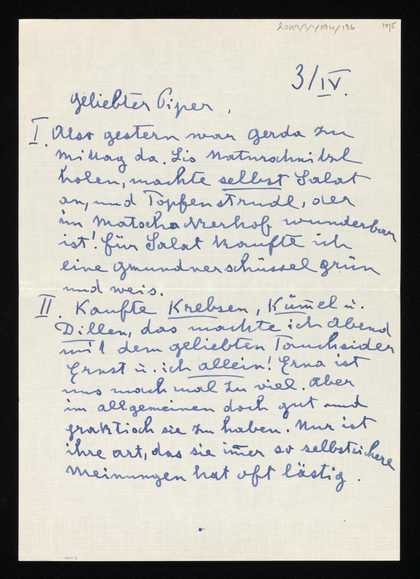 3/IV.
geliebter Piper,
I. Also gestern war Gerda zu
Mittag da. Lio Naturschnitzl
holen, machte selbst Salat
an, und Topfenstrudl, der
im Matschakerhof wunderbar
ist! für Salat kaufte ich
eine gmundnerschüssel grün
und weis.
II. Kaufte Krebsen, Kümel u.
Dillen, das machte ich Abend
mit dem geliebten
Ernst u. ich allein! Erna ist
uns manchmal zu viel. Aber
im allgemeinen doch gut und
praktisch sie zu haben. Nur ist
ihre art, das sie imer so selbstsichere
Meinungen hat oft lästig.